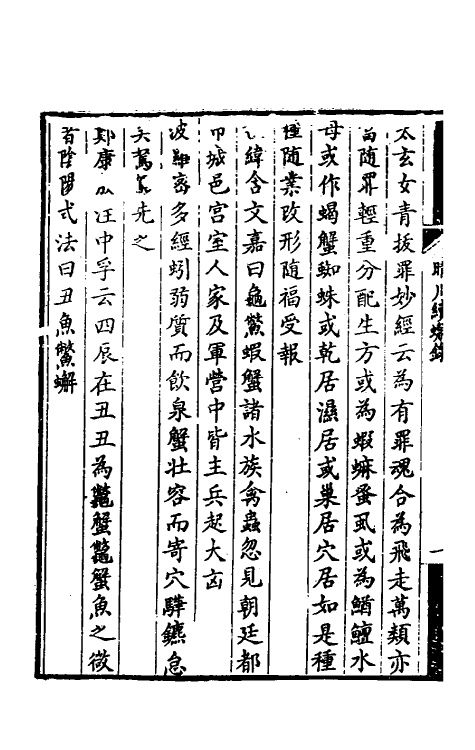 晴川續蟹錄
太玄女青拔罪妙經云為有罪魂合為飛走萬類亦
當隨罪輕重分配生方或為蝦蟆蚤虱或為鰌鱣水
母或作蝎蟹蜘蛛或乾居濕居或巢居穴居如是種
種隨業改形隨福受報
緯含文嘉曰龜鱉蝦蟹諸水族禽蟲忽見朝廷都
市城邑宮室人家及軍營中皆主兵起大凶
波羅蜜多經蚓弱質而飲泉蟹壯容而寄穴驊鑣息
矣駕家先之
鄭康成注中孚云四辰在丑丑為鼈蟹鼈蟹魚之微
者陰陽式法曰丑魚鱉蠏